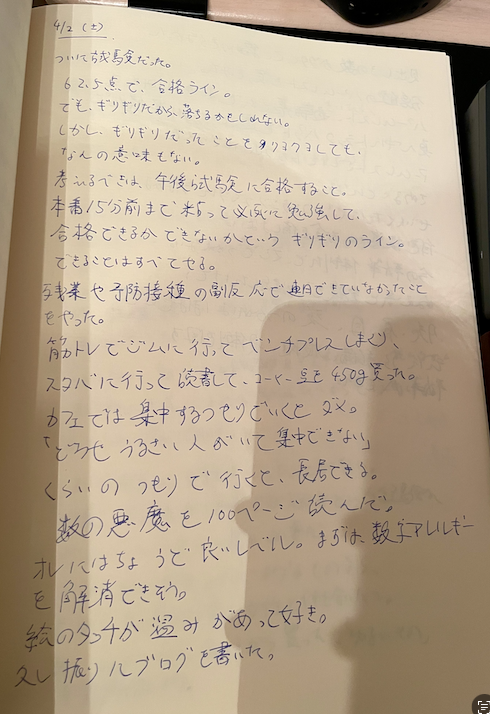 4/2 (土)
ついに試験だった。
62.5点で、合格ライン。
でも、ギリギリだから落ちるかもしれない。
しかし、ギリギリだったことをクヨクヨしても、
なんの意味もない。
考えるべきは、午後試験に合格すること。
本番15分前まで粘って必死に勉強して、
合格できるかできないかというギリギリのライン。
できることはすべてやる。
残業や予防接種の副反応で連日できていなかったこと
をやった。
筋トレでジムに行ってベンチプレスしまくり、
スタバに行って読書して、コーヒー豆を450g買った。
カフェでは集中するつもりでいくとダメ。
「どうせうるさい人がいて集中できない」
くらいのつもりで行くと、長居できる。
数の悪魔を100ページ読んだ。
オレにはちょうど良いレベル。まずは数学アレルギー
を解消できそう。
絵のタッチが温みがあって好き。
久し振りにブログを書いた。